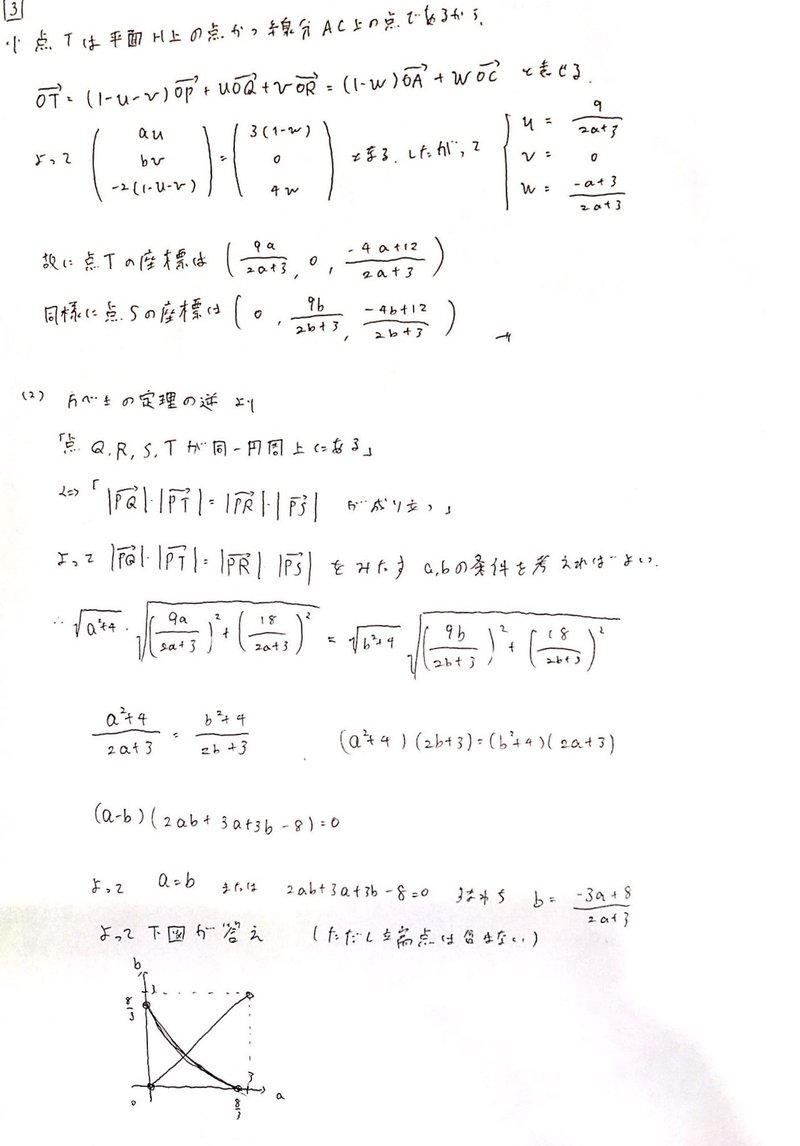 3
(1) 点Tは平面H上の点かつ線分AC上の点であるから、
OT = (1-u-v)OP + uOQ + vOR = (1-w)OA + wOC と表せる.
よって (au, bv, -2(1-u-v)) = (3(1-w), 0, 4w) となる. したがって { u = 9/(2a+3) v = 0 w = (-a+3)/(2a+3)
故に点Tの座標は (9a/(2a+3), 0, (-4a+12)/(2a+3))
同様に点Sの座標は (0, 9b/(2b+3), (-4b+12)/(2b+3))
(2) 方べきの定理の逆より
「点Q,R,S,Tが同一円周上にある」
⇔「|PQ|・|PT| = |PR|・|PS| が成り立つ」
よって |PQ|・|PT| = |PR| |PS| をみたす a,bの条件を考えればよい.
∴ √(a²+4)・√((9a/(2a+3))²+(18/(2a+3))²) = √(b²+4) √((9b/(2b+3))²+(18/(2b+3))²)
(a²+4)/(2a+3) = (b²+4)/(2b+3) (a²+4)(2b+3)=(b²+4)(2a+3)
(a-b)(2ab+3a+3b-8)=0
よって a=b または 2ab+3a+3b-8=0 すなわち b = (-3a+8)/(2a+3)
よって下図が答え (ただし端点は含まない)
b
3
8/3
0
3
8/3
a